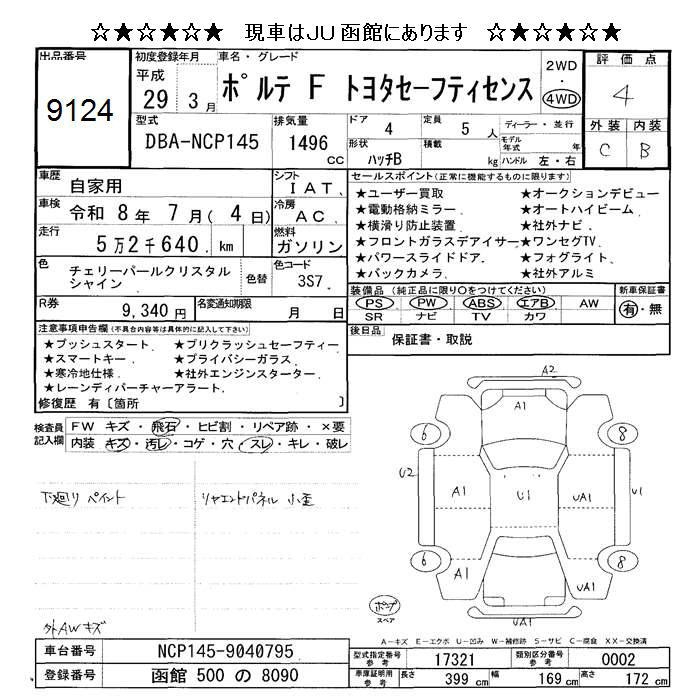 ☆★☆★☆★ 現車はJU函館にあります ☆★☆★☆★
出品番号
9124
初度登録年月
平成
29 3月
車名・グレード
ポルテ F トヨタセーフティセンス
2WD
・
4WD
評価点
4
外装 内装
C B
型式
DBA-NCP145
排気量
1496
cc
ドア
4
定員
5 人
形状
ハッチB
積載
kg
ディーラー・並行
モデル年式 年
ハンドル 左・右
車歴
自家用
シフト
IAT
車検
令和 8年 7月( 4日)
冷房
AC
走行
5万2千640 km
燃料
ガソリン
色
チェリーパールクリスタル
シャイン
色替
色コード
3S7
R券
9,340円
名変通知期限
月 日
セールスポイント(正常に機能するものに限ります)
★ユーザー買取 ★オークションデビュー
★電動格納ミラー ★オートハイビーム
★横滑り防止装置 ★社外ナビ
★フロントガラスデアイサー ★ワンセグTV
★パワースライドドア ★フォグライト
★バックカメラ ★社外アルミ
装備品(純正品に限り○をつけてください)
PS PW ABS エアB AW
SR ナビ TV カワ
新車保証書
有・無
後日品
保証書・取説
注意事項申告欄(不具合内容等は具体的に記入して下さい)
★プッシュスタート ★プリクラッシュセーフティー
★スマートキー ★プライバシーガラス
★寒冷地仕様 ★社外エンジンスターター
★レーンディパーチャーアラート
修復歴 有〔箇所 〕
検査員記入欄
FW キズ・飛石・ヒビ割・リペア跡・×要
内装 キズ・汚レ・コゲ・穴・スレ・キレ・破レ
下廻り ペイント
リヤエンドパネル 小歪
外AWキズ
A2
A1
6
8
U2
A1
U1
UA1
U1
6
8
A1
UA1
UA1
ポンプ
スペア
A-キズ E-エクボ U-凹み W-補修跡 S-サビ C-腐食 XX-交換済
車台番号
NCP145-9040795
登録番号
函館 500 の 8090
型式指定番号
参考
17321
類別区分番号
参考
0002
車庫証明用
参考
長さ
399 cm
幅
169 cm
高さ
172 cm